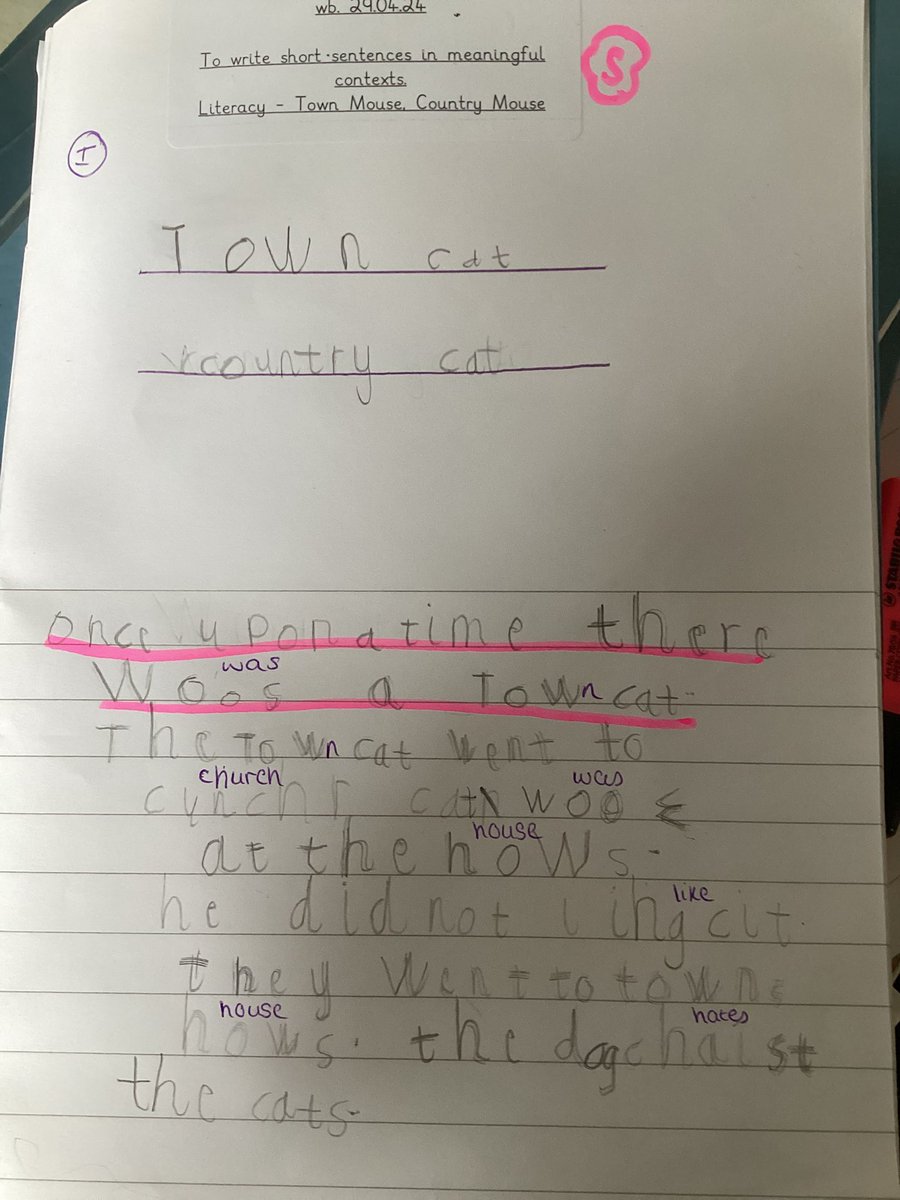 wb. 29.04.24
To write short sentences in meaningful
contexts.
Literacy - Town Mouse, Country Mouse
S
I
Town cat
country cat
once upon a time there
was
Woos a Town cat.
The Town cat went to
church was
woo
house
at the hows.
like
he did not
they went to town
house hates
hows. the dog
the cats.